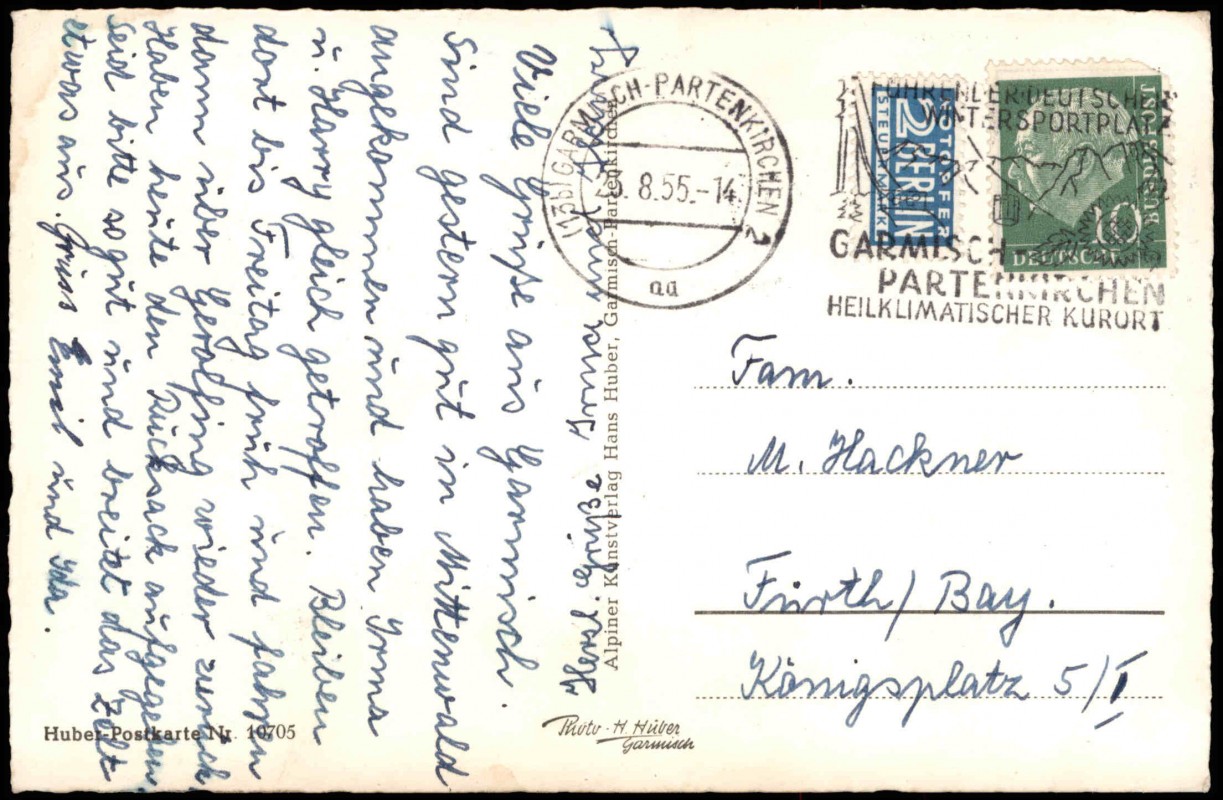 Viele Grüße aus Garmisch.
Sind gestern gut in Mittenwald
angekommen und haben Irma
u. Harry gleich getroffen. Bleiben
dort bis Freitag früh und fahren
dann über Gerolfing wieder zurück.
Haben heute den Rucksack aufgegeben,
seid bitte so gut und breitet das Zelt
etwas aus. Gruss Emil und Ida.
Herzl. Grüße Irma und Harry
Alpiner Kunstverlag Hans Huber, Garmisch-Partenkirchen
(13b) GARMISCH-PARTENKIRCHEN 2
8.55.-14
aa
NOTOPFER
2 BERLIN
STEUERMARKE
DEUTSCHE
BUNDESPOST
10
FÜHRENDER DEUTSCHER
WINTERSPORTPLATZ
GARMISCH
PARTENKIRCHEN
HEILKLIMATISCHER KURORT
Fam.
M. Hackner
Fürth / Bay.
Königsplatz 5/I
Huber-Postkarte Nr. 10705
Photo-H. Huber
Garmisch